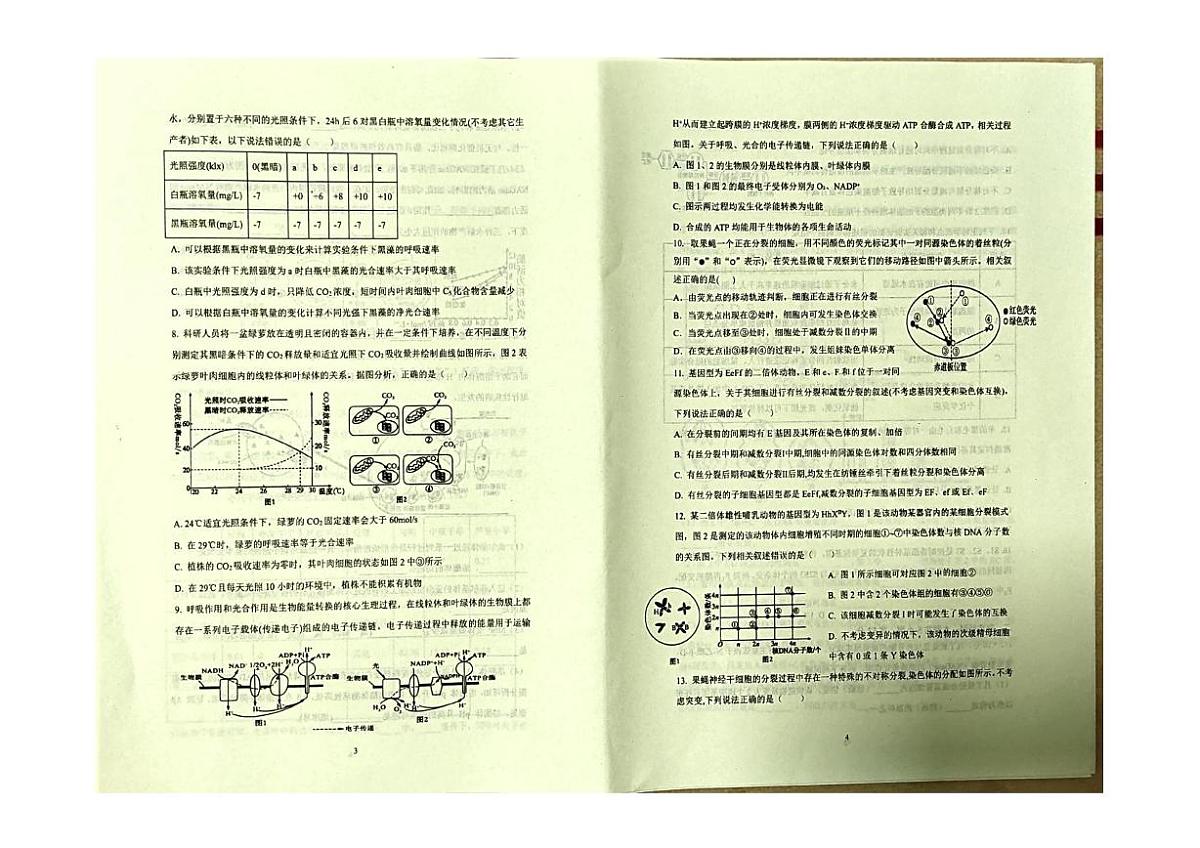 水，分别置于六种不同的光照条件下，24h 后 6 对黑白瓶中溶氧量变化情况(不考虑其它生
产者)如下表，以下说法错误的是（ ）
光照强度(klx) 0(黑暗) a b c d e
白瓶溶氧量(mg/L) -7 +0 +6 +8 +10 +10
黑瓶溶氧量(mg/L) -7 -7 -7 -7 -7 -7
A. 可以根据黑瓶中溶氧量的变化来计算实验条件下黑藻的呼吸速率
B. 该实验条件下光照强度为 a 时白瓶中黑藻的光合速率大于其呼吸速率
C. 白瓶中光照强度为 d 时，只降低 CO₂ 浓度，短时间内叶肉细胞中 C₅ 化合物含量减少
D. 可以根据白瓶中溶氧量的变化计算不同光强下黑藻的净光合速率
8. 科研人员将一盆绿萝放在透明且密闭的容器内，并在一定条件下培养，在不同温度下分
别测定其黑暗条件下的 CO₂ 释放量和适宜光照下 CO₂ 吸收量并绘制曲线如图所示，图 2 表
示绿萝叶肉细胞内的线粒体和叶绿体的关系。据图分析，正确的是（ ）
光照时CO₂吸收速率
黑暗时CO₂释放速率
CO₂吸收速率mol/s
CO₂释放速率mol/s
60
40
20
30
20
10
20 22 24 26 28 29 30 温度(℃)
图1
CO₂ CO₂
CO₂
① ②
CO₂ CO₂
③ ④
图2
A. 24℃适宜光照条件下，绿萝的 CO₂ 固定速率会大于 60mol/s
B. 在 29℃时，绿萝的呼吸速率等于光合速率
C. 植株的 CO₂ 吸收速率为零时，其叶肉细胞的状态如图 2 中③所示
D. 在 29℃且每天光照 10 小时的环境中，植株不能积累有机物
9. 呼吸作用和光合作用是生物能量转换的核心生理过程，在线粒体和叶绿体的生物膜上都
存在一系列电子载体(传递电子)组成的电子传递链，电子传递过程中释放的能量用于运输
生物膜 NADH NAD⁺ 1/2O₂+2H⁺ H₂O ADP+Pi H⁺ ATP
ATP合酶
H⁺ H⁺ H⁺
图1
生物膜 光 NADP⁺+H⁺ NADPH ADP+Pi H⁺ ATP
ATP合酶
H₂O O₂ H⁺ H⁺
图2
电子传递
3
H⁺从而建立起跨膜的 H⁺浓度梯度，膜两侧的 H⁺浓度梯度驱动 ATP 合酶合成 ATP，相关过程
如图，关于呼吸、光合的电子传递链，下列说法正确的是（ ）
A. 图 1、2 的生物膜分别是线粒体内膜、叶绿体内膜
B. 图 1 和图 2 的最终电子受体分别为 O₂、NADP⁺
C. 图示两过程均发生化学能转换为电能
D. 合成的 ATP 均能用于生物体的各项生命活动
10. 取果蝇一个正在分裂的细胞，用不同颜色的荧光标记其中一对同源染色体的着丝粒(分
别用“●”和“○”表示)，在荧光显微镜下观察到它们的移动路径如图中箭头所示。相关叙
述正确的是( )
A. 由荧光点的移动轨迹判断，细胞正在进行有丝分裂
B. 当荧光点出现在②处时，细胞内可发生染色体交换
C. 当荧光点移至③处时，细胞处于减数分裂Ⅱ的中期
D. 在荧光点由③移向④的过程中，发生姐妹染色单体分离
① ① ② ② ④ ④ ③ ③
●红色荧光
○绿色荧光
赤道板位置
11. 基因型为 EeFf 的二倍体动物，E 和 e、F 和 f 位于一对同
源染色体上，关于其细胞进行有丝分裂和减数分裂的叙述(不考虑基因突变和染色体互换)，
下列说法正确的是（ ）
A. 在分裂前的间期均有 E 基因及其所在染色体的复制、加倍
B. 有丝分裂中期和减数分裂Ⅰ中期,细胞中的同源染色体对数和四分体数相同
C. 有丝分裂后期和减数分裂Ⅱ后期,均发生在纺锤丝牵引下着丝粒分裂和染色体分离
D. 有丝分裂的子细胞基因型都是 EeFf,减数分裂的子细胞基因型为 EF、ef 或 Ef、eF
12. 某二倍体雄性哺乳动物的基因型为 HhXᴮY，图 1 是该动物某器官内的某细胞分裂模式
图，图 2 是测定的该动物体内细胞增殖不同时期的细胞①~⑦中染色体数与核 DNA 分子数
的关系图。下列相关叙述错误的是（ ）
图1
染色体数/条
4n
3n
2n
n
0 n 2n 3n 4n
核DNA分子数/个
① ② ③ ④ ⑤ ⑥ ⑦
图2
A. 图 1 所示细胞可对应图 2 中的细胞②
B. 图 2 中含 2 个染色体组的细胞有③④⑤⑥
C. 该细胞减数分裂 I 时可能发生了染色体的互换
D. 不考虑变异的情况下，该动物的次级精母细胞
中含有 0 或 1 条 Y 染色体
13. 果蝇神经干细胞的分裂过程中存在一种特殊的不对称分裂,染色体的分配如图所示。不考
虑突变,下列说法正确的是（ ）
4